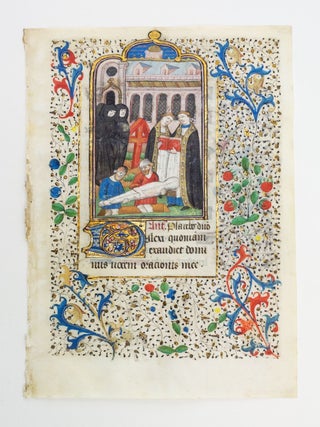 Ant. Placebo dno
Dilexi quoniam
exaudiet domi
nus uocem orationis mee.